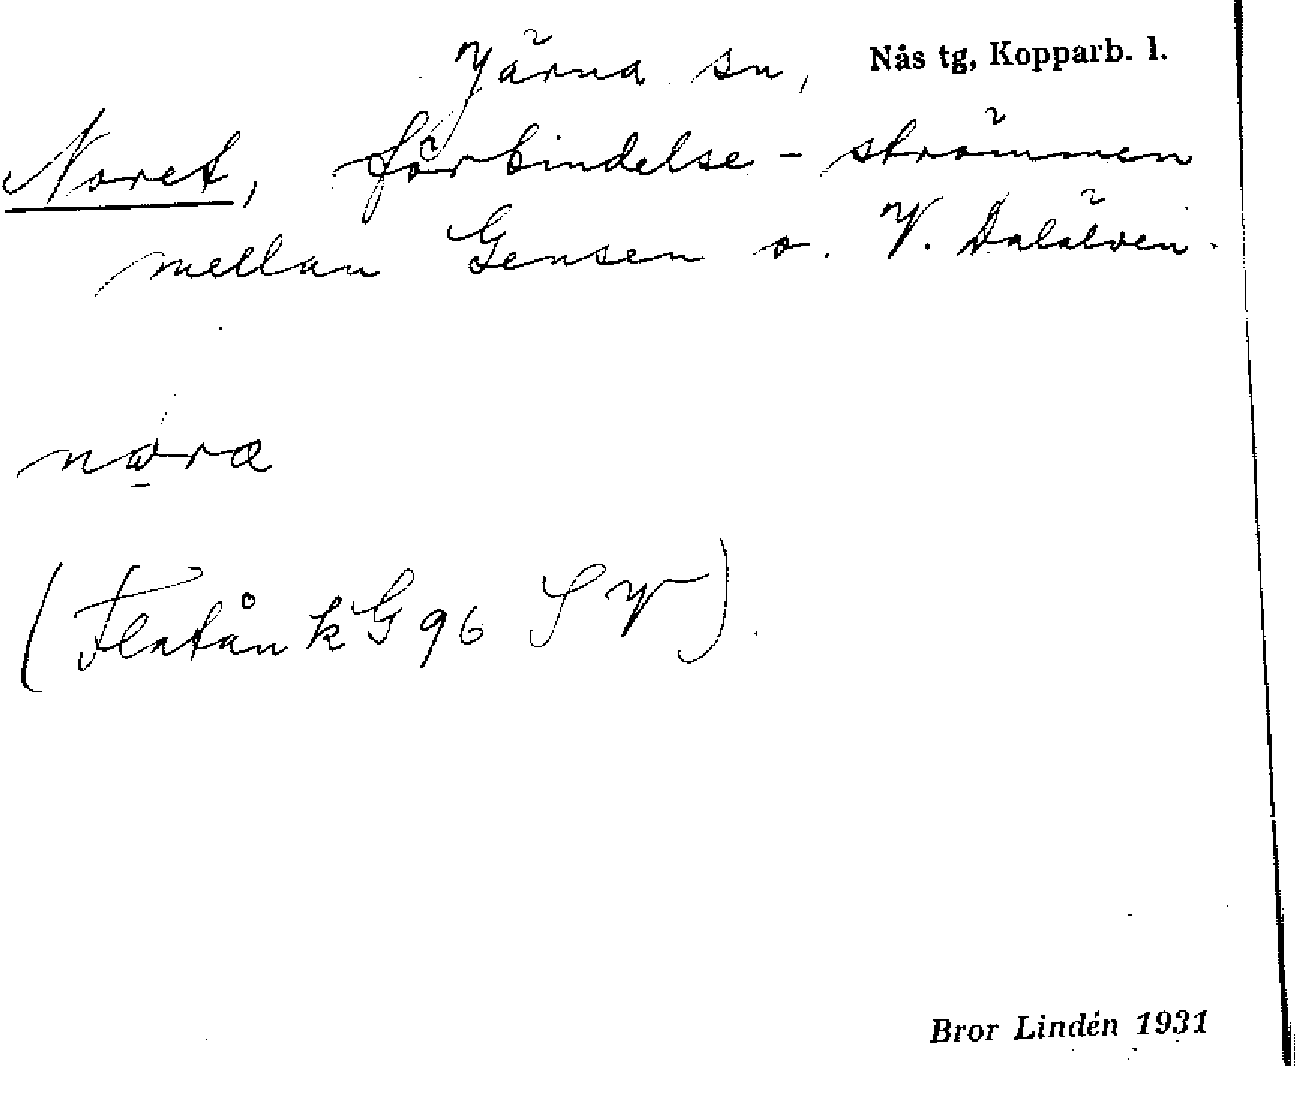 Järna sn, Nås tg, Kopparb. l.
Noret, förbindelse-strömmen
mellan Gensen o. V. Dalälven.
nora
(Flatån kG 96 SV).
Bror Lindén 1931